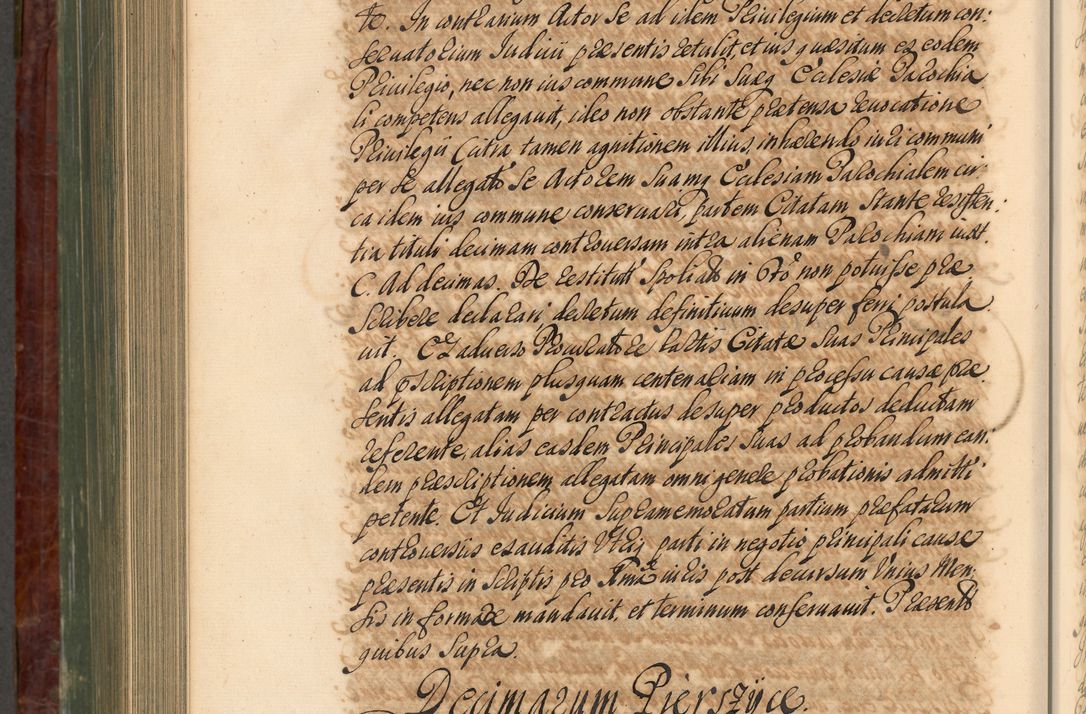 te. In contrarium Actor se ad idem Privilegium et decretum con:
servatorium Iudicii præsentis retulit, et ius quæsitum ex eodem
Privilegio, nec non ius commune sibi suæq Ecclesiæ Parochia
li competens allegavit, ideo non obstante prætensa revocatione
Privilegii citra tamen agnitionem illius, inhærendo iuri communi
per se allegato se Actorem suamq Ecclesiam Parochialem cir:
ca idem ius commune conservari, partem Citatam stante resisten:
tia tituli decimam controversam intra alienam Parochiam iuxt.
C. Ad decimas. De restitut Spoliat in 6to non potuisse præ
scribere declarari, decretum definitivum desuper ferri postula
vit. Ex adverso Procuratore Partis Citatæ suas Principales
ad præscriptionem plusquam centenariam in processu causæ præ
sentis allegatam per contractus desuper productos deductam
referente, alias easdem Principales suas ad probandum ean:
dem præscriptionem allegatam omni genere probationis admitti
petente. Et Iudicium supramemoratum partium præfatarum
controversiis exauditis Utriq parti in negotio principali causæ
præsentis in scriptis pro iuris post decursum Unius Men
sis in mandavit, et terminum conservavit. Præsentib
quibus supra.
Decimarum Pierszÿce.